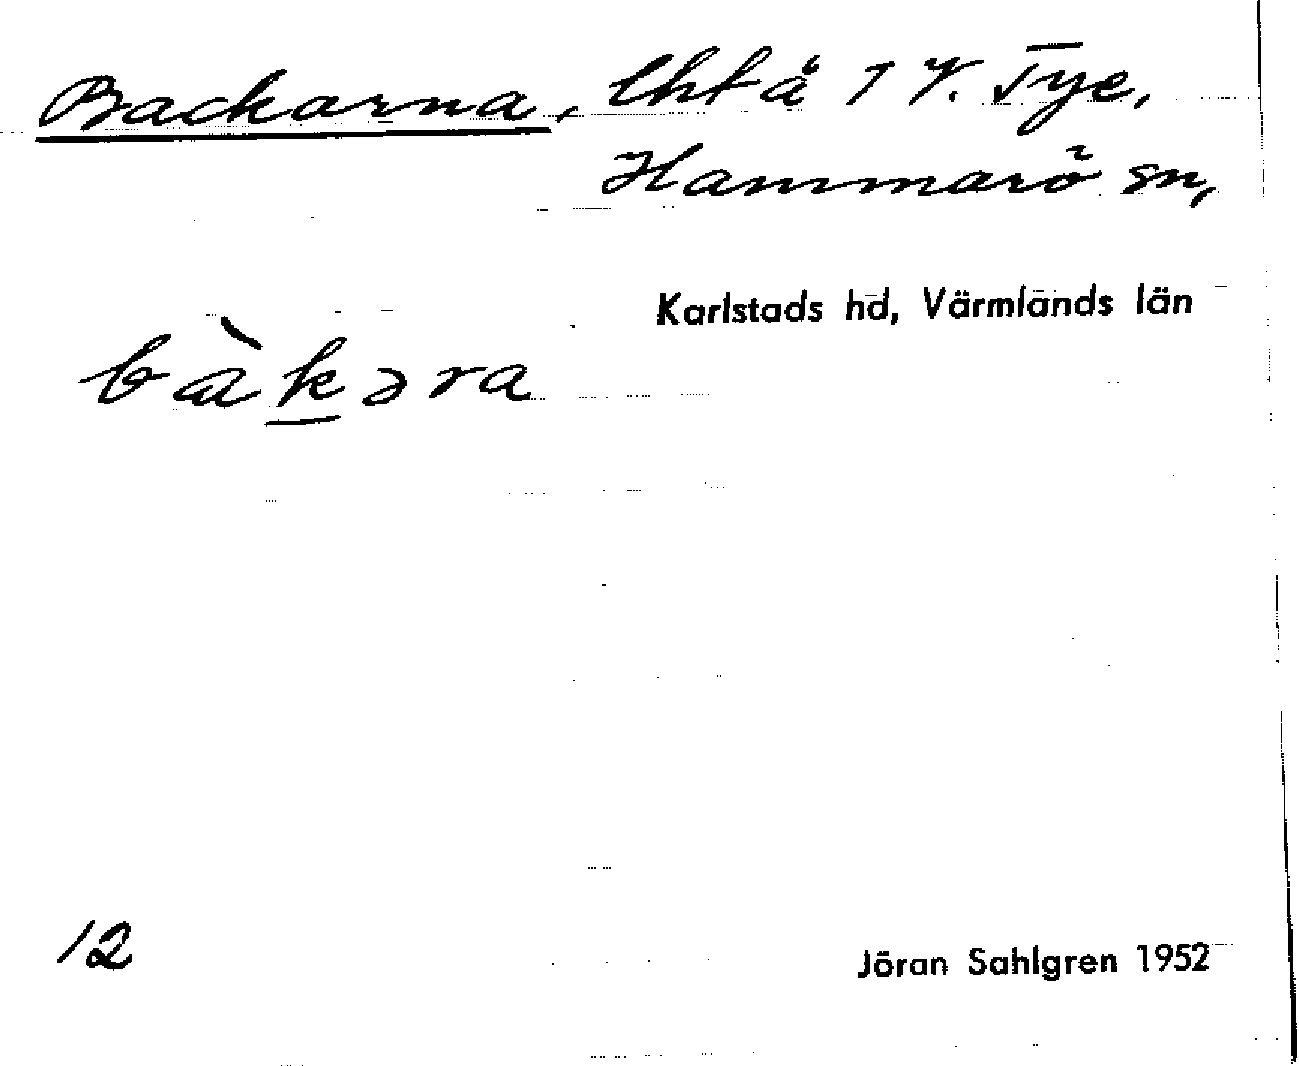 Backarna, lht å 1 V. Tye,
Hammarö sn,
Karlstads hd, Värmlands län
bàkəra
12
Jöran Sahlgren 1952